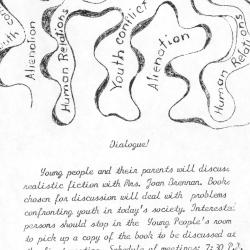 Alienation
Human Relations
Youth conflict
Alienation
Human Relations
Dialogue!
Young people and their parents will discuss
realistic fiction with Mrs. Joan Brennan. Books
chosen for discussion will deal with problems
confronting youth in today's society. Interested
persons should stop in the Young People's room
to pick up a copy of the book to be discussed at
Schedule of meetings: 7:30 P.